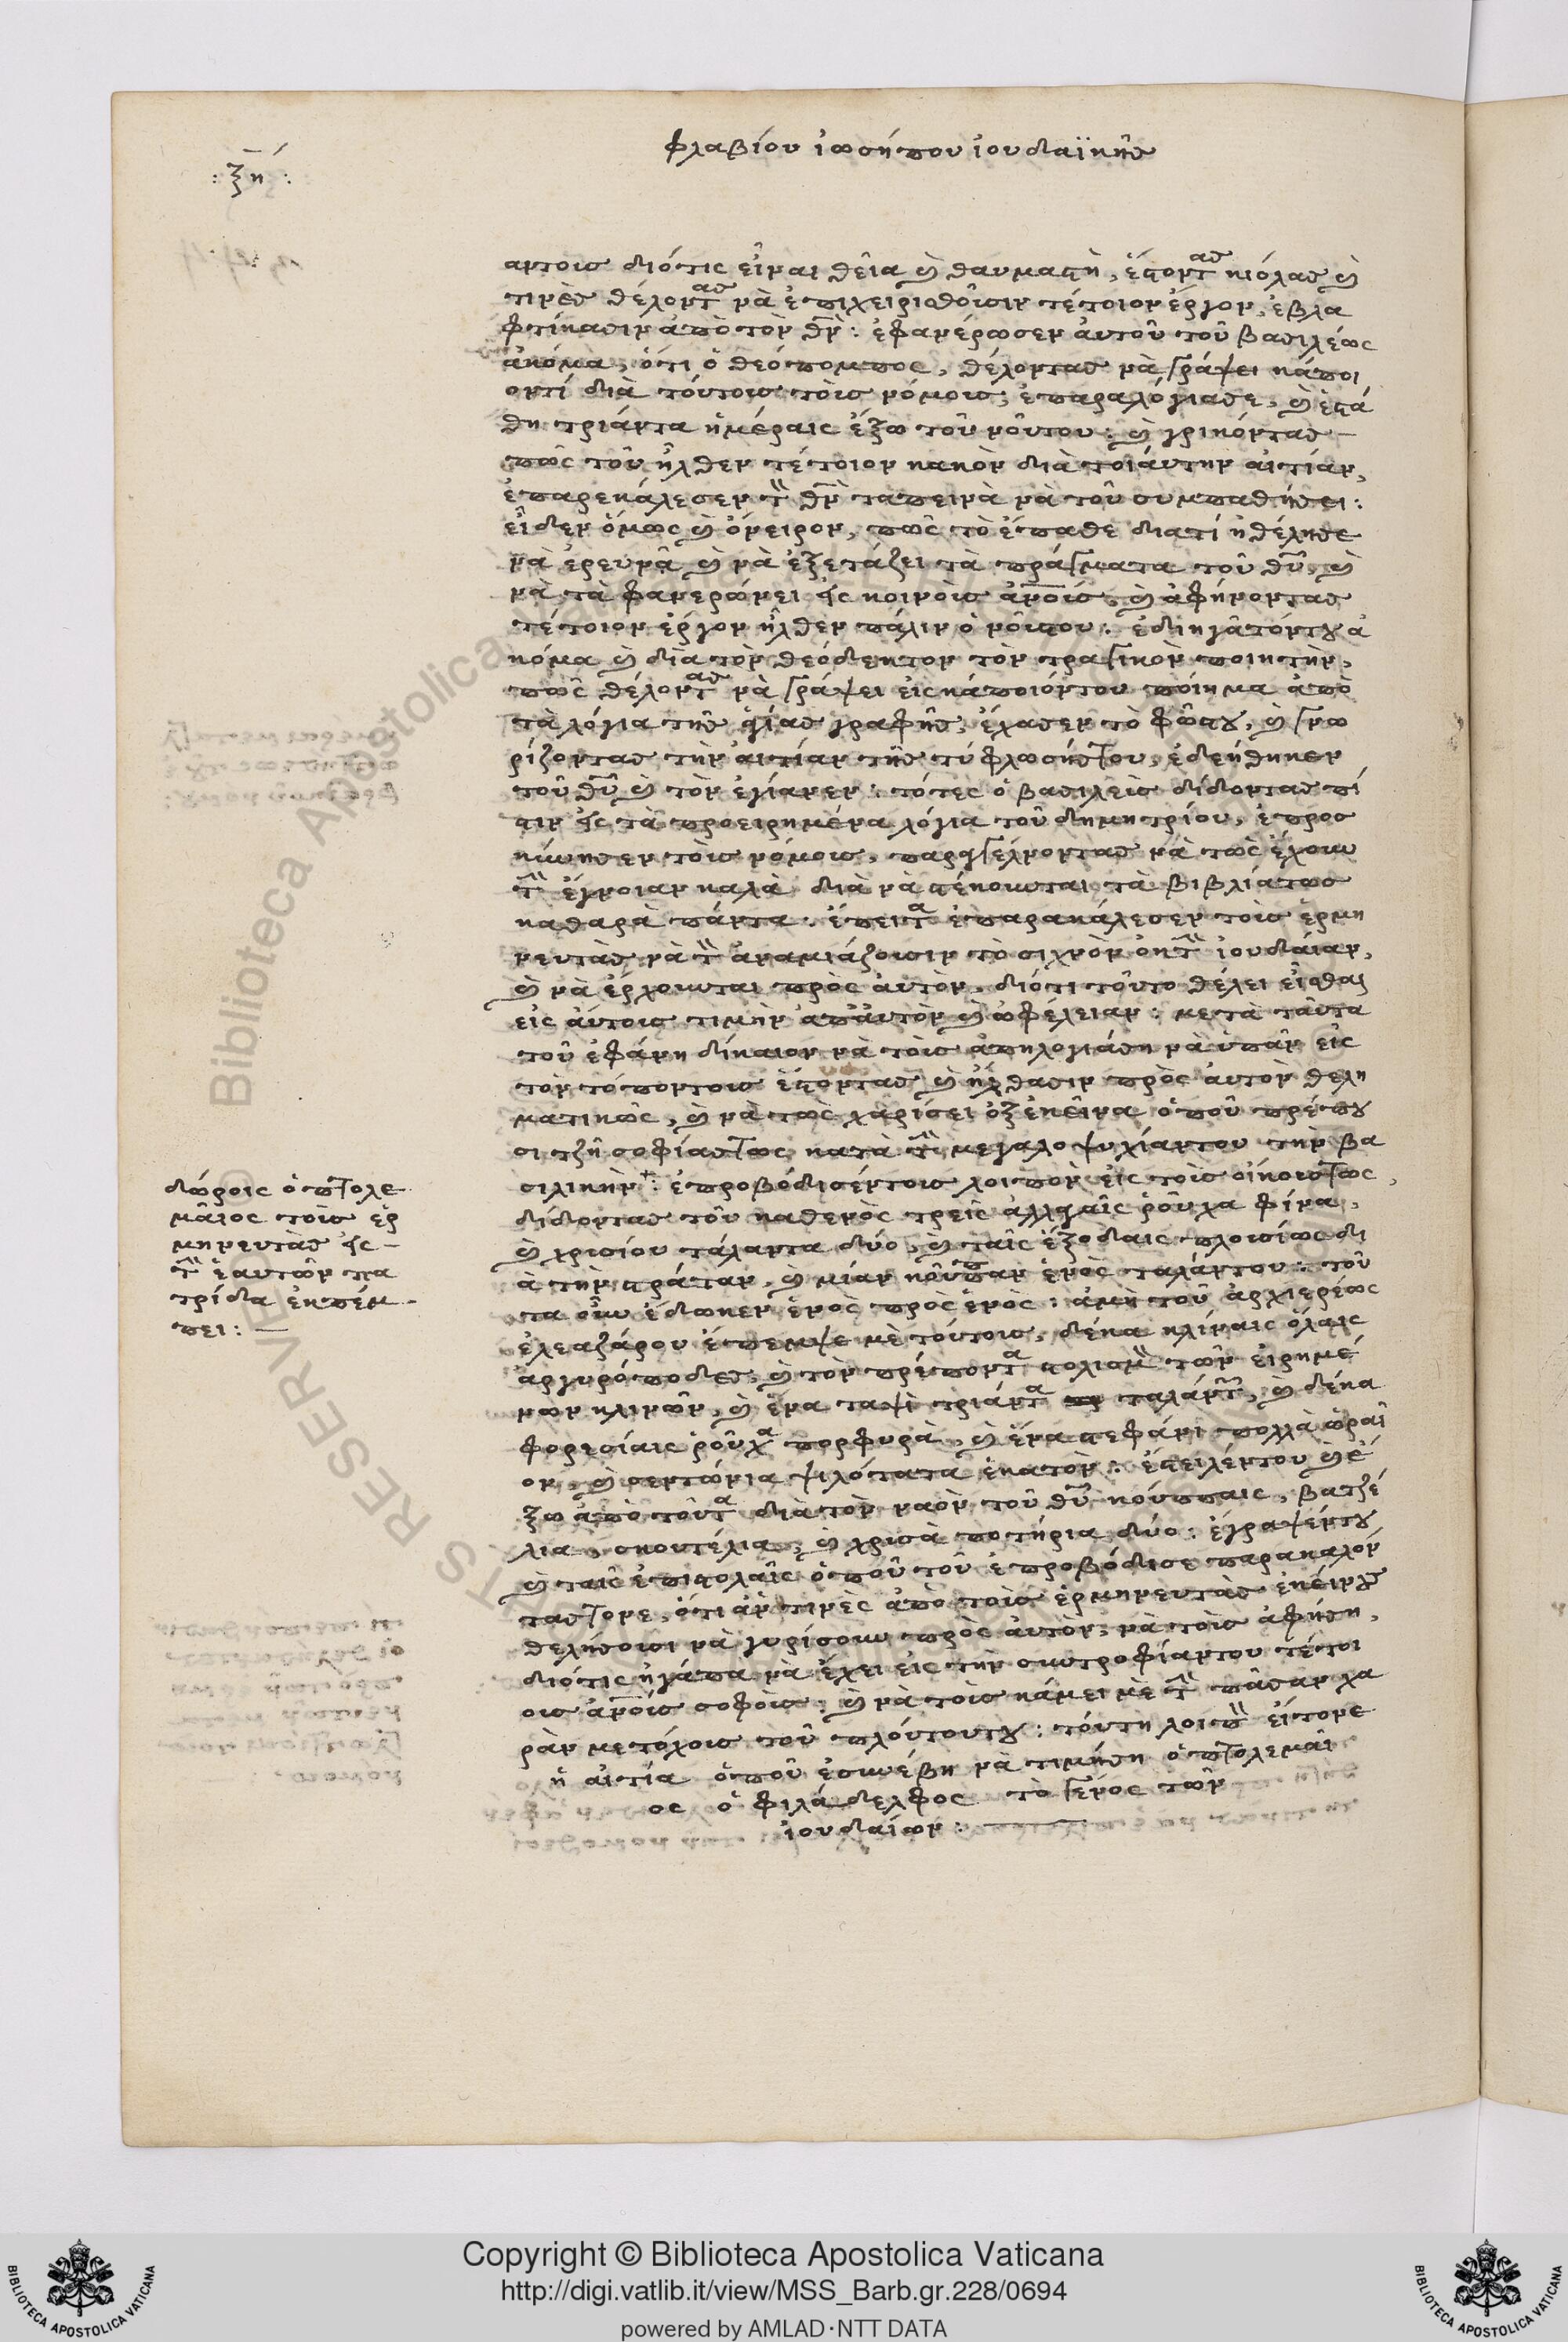 φλαβίου ἰωσήπου ἰουδαϊκῆς
: ξη :
αυτοισ διότις εἶναι θεῖα καὶ θαυμαστὴ, ἔστοντας κιόλας καὶ
τινὲς θέλοντας νὰ ἐπιχειρισθοῦσιν τέτοιον ἔργον, ἐβλα
φτίκασιν ἀπὸ τὸν θν̄: ἐφανέρωσεν ἀυτοῦ τοῦ βασιλέως
ἀκόμα, ὅτι ὁ θεόπομπος, θέλοντας νὰ γράψει κάποι
οντί διὰ τόυτοισ τὸισ νόμοισ, ἐπαραλόγιασε, καὶ ἐστά
θη τριάντα ἡμέραις ἔξω τοῦ νοῦντου: καὶ γρικόντας
πῶς τοῦ ἦλθεν τέτοιον κακὸν διὰ τοιάυτην αἰτίαν,
ἐπαρεκάλεσεν τὸν θν̄ ταπεινὰ νὰ τοῦ συμπαθήσει:
εἶδεν ὅμως καὶ ὄνειρον, πῶς τὸ ἔπαθε διατί ἠθέλησε
νὰ ἐρευνᾶ καὶ νὰ ἐξετάζει τὰ πράγματα τοῦ θῦ, καὶ
νὰ τὰ φανερώνει εἰς κοινὸισ ἀν̄οισ, καὶ ἀφήνοντας
τέτοιον ἔργον ἦλθεν πάλιν ὁ νοῦστου: ἐδιηγᾶτόντου ἀ
κόμα καὶ διὰ τὸν θεόδεκτον τὸν τραγικὸν ποιητὴν,
πῶς θέλοντας νὰ γράψει εἰς κάποιόντου πόιημα ἀπὸ
τὰ λόγια τῆς ἁγίας γραφῆς, ἔχασεν τὸ φῶστου, καὶ γνω
ρίζοντας τὴν ἀιτίαν τῆς τύφλωσήστου, ἐδεήθηκεν
τοῦ θῦ καὶ τὸν ἐγίανεν: τότες ὁ βασιλεὺσ δίδοντας πί
στιν εἰς τὰ προειρημένα λόγια τοῦ δημητρίου, ἐπροσ
κύνησεν τὸισ νόμοισ, παραγγέλνοντας νὰ τῶς ἔχουν
τὴν ἔγνοιαν καλὰ διὰ νὰ στέκουνται τὰ βιβλίατωσ
καθαρὰ πάντα: ἔπειτα ἐπαρακάλεσεν τοὶσ ἑρμη
νευτὰς νὰ τὸν ἀναμιάζουσιν τὸ συχνὸν ἐκ τὴν ἰουδαίαν,
καὶ νὰ ἔρχουνται πρὸς ἀυτὸν, διότι τοῦτο θέλει εἶσθαι
εἰς ἀυτοισ τιμὴν ἀπἀυτὸν καὶ ὠφέλειαν: μετὰ τᾶυτα
τοῦ ἐφάνη δίκαιον νὰ τοὶσ ἀπηλογιάση νὰ ὑπᾶν εἰς
τὸν τόποντουσ ἔστοντας καὶ ἤλθασιν πρὸς ἀυτὸν θελη
ματικῶς, καὶ νὰ τῶς χαρίσει ὀξἐκεῖνα ὁποῦ πρέπου
σι τζῆ σοφίαςτως κατὰ τὴν μεγαλοψυχίαντου τὴν βα
σιλικήν: ἐπροβόδισέντουσ λοιπὸν εἰς τοὶσ οἴκουστως,
δίδοντας τοῦ καθενὸς τρεῖς ἀλλαγαῖς ῥοῦχα φίνα,
καὶ χρισίου τάλαντα δύο, καὶ ταῖς ἔξοδαις πλουσίως δι
ὰ τὴν στράταν, καὶ μίαν κοῦπαν ἑνὸς ταλάντου: τοῦ
τα οὖν ἔδωκεν ἑνὸς πρὸς ἑνὸς: ἀμὴ τοῦ ἀρχιερέως
ἐλεαζάρου ἔπεμψε μὲ τόυτουσ, δέκα κλίναις ὅλαις
ἀργυρόποδες, καὶ τὸν πρέποντα στολισμὸν τῶν εἰρημέ
νων κλινῶν, καὶ ἕνα τασὶ τριάντα ταλάντων, καὶ δέκα
φορεσίαις ῥοῦχα πορφυρὰ, καὶ ἕνα στεφάνι πολλὰ ὡραῖ
ον, καὶ σεντώνια ψιλότατα ἑκατὸν: ἔστειλέντου καὶ ἔ
ξω ἀπὸ τοῦτα διὰ τὸν ναὸν τοῦ θῦ κούππαις, βατζέ
λια, σκουτέλια, καὶ χρισὰ ποτήρια δύο: ἔγραψέντου
καὶ ταῖς ἐπιστολαῖς ὁποῦ τοῦ ἐπροβόδισε παρακαλόν
ταςτονε, ὅτι ἀν τινὲς ἀπὸ τοὶσ ἑρμηνευτὰς ἐκείνους
θελήσουσι νὰ γυρίσουν πρὸς ἀυτὸν, νὰ τοὶσ ἀφήση,
διότις ἠγάπα νὰ ἔχει εἰς τὴν συντροφίαντου τέτοι
ουσ ἀν̄οισ σοφοὶσ: καὶ νὰ τοὶσ κάμει μὲ τὴν πᾶσαν χα
ρὰν μετόχουσ τοῦ πλόυτουντου: τόυτη λοιπὸν εἶτονε
ἡ αἰτία ὁποῦ ἐσυνέβη νὰ τιμήση ὁ πτολεμαῖ
ος ὁ φιλάδελφος τὸ γένος τῶν
ἰουδαίων:
δώροις ὁ πτολε
μᾶιος τοὶσ ἑρ
μηνευτὰς εἰς
τὴν ἑαυτῶν πα
τρίδα ἐκπέμ
πει:
Copyright © Biblioteca Apostolica Vaticana
http://digi.vatlib.it/view/MSS_Barb.gr.228/0694
powered by AMLAD·NTT DATA